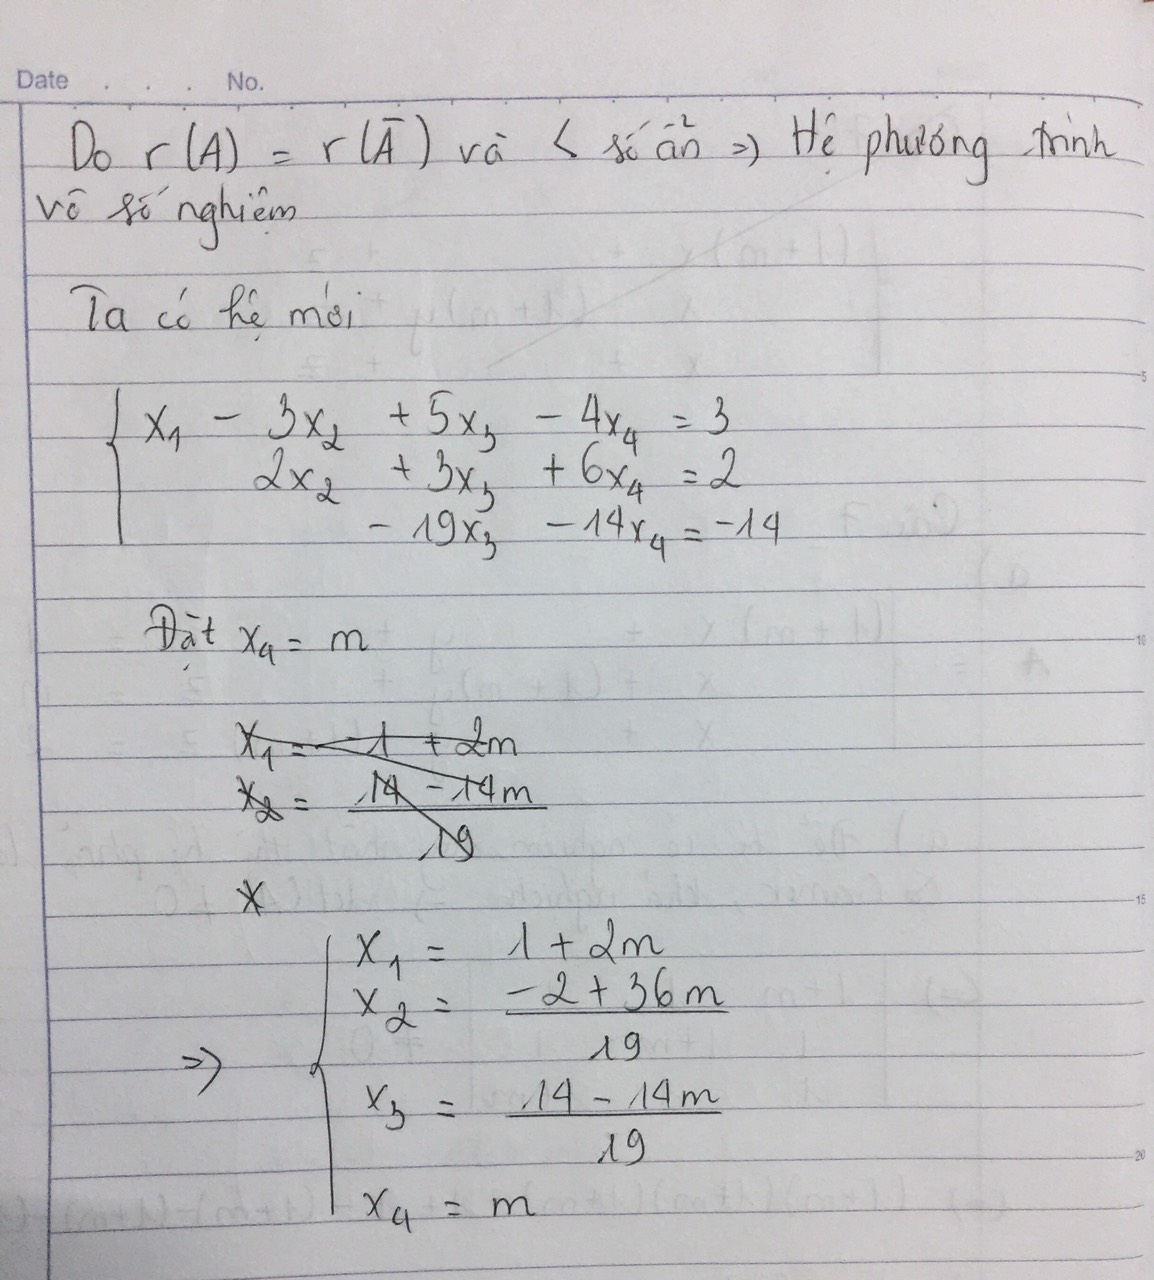 Date . . . No.
Do r(A) = r(Ā) và < số ẩn => Hệ phương trình
vô số nghiệm
Ta có hệ mới
x₁ - 3x₂ + 5x₃ - 4x₄ = 3
2x₂ + 3x₃ + 6x₄ = 2
- 19x₃ - 14x₄ = -14
5
Đặt x₄ = m
10
x₁ = -1 + 2m
x₂ = (14 - 14m)/19
x
15
x₁ = 1 + 2m
x₂ = (-2 + 36m)/19
=>
x₃ = (14 - 14m)/19
20
x₄ = m